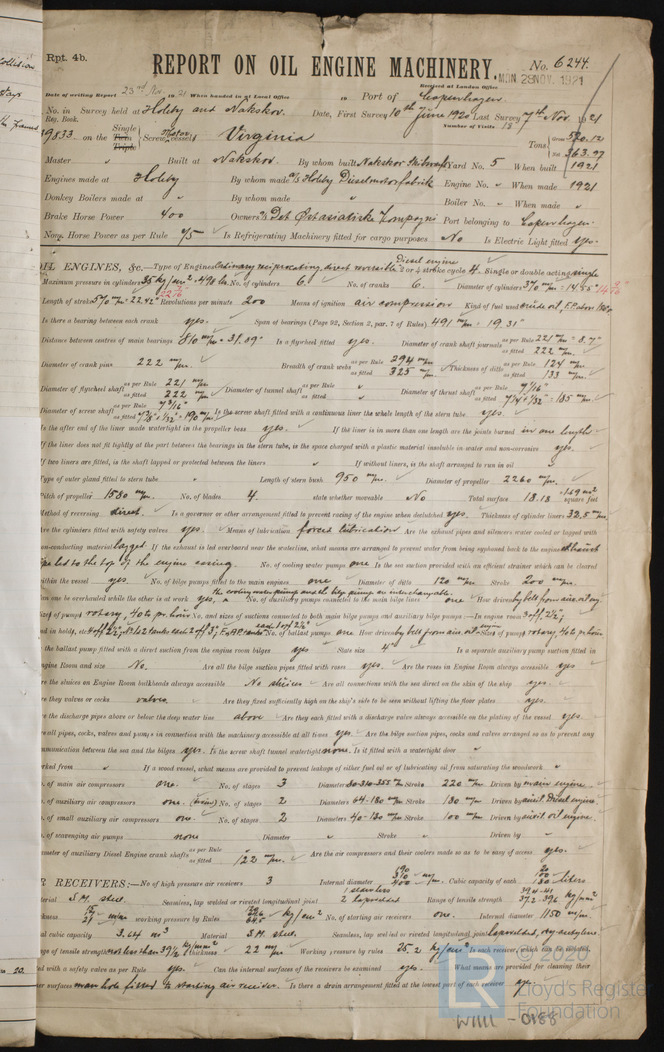 Rpt. 4b.
REPORT ON OIL ENGINE MACHINERY.
No. 6244.
Received at London Office
MON 28 NOV. 1921
Date of writing Report 23rd Nov. 1921 When handed in at Local Office
Port of Copenhagen.
No. in Survey held at Holeby and Nakskov. Date, First Survey 10th June 1920 Last Survey 7th Nov. 1921
Reg. Book. Number of Visits 18
19833 on the Single Twin Triple Screw Motor vessel Virginia Tons Gross 520.12 Net 363.97
Master " Built at Nakskov. By whom built Nakskov Skibsværft Yard No. 5 When built 1921
Engines made at Holeby By whom made A/S Holeby Dieselmotorfabrik Engine No. " When made 1921
Donkey Boilers made at " By whom made " Boiler No. " When made "
Brake Horse Power 400 Owners A/S Det Østasiatiske Kompagni Port belonging to Copenhagen.
Nom. Horse Power as per Rule 75 Is Refrigerating Machinery fitted for cargo purposes No Is Electric Light fitted yes.
OIL ENGINES, &c.—Type of Engines Ordinary reciprocating direct reversible Diesel engine 2 or 4 stroke cycle 4. Single or double acting single
Maximum pressure in cylinders 35 kg/cm² No. of cylinders 6. No. of cranks 6. Diameter of cylinders 370 m/m = 14.55"
Length of stroke 570 m/m = 22.42" Revolutions per minute 200 Means of ignition air compression Kind of fuel used crude oil, F.P. above 150°F
Is there a bearing between each crank yes. Span of bearings (Page 92, Section 2, par. 7 of Rules) 491 m/m = 19.31"
Distance between centres of main bearings 810 m/m = 31.89" Is a flywheel fitted yes. Diameter of crank shaft journals as per Rule 221 m/m = 8.7" as fitted 222 m/m.
Diameter of crank pins 222 m/m. Breadth of crank webs as per Rule 294 m/m as fitted 325 m/m. Thickness of ditto as per Rule 124 m/m as fitted 133 m/m.
Diameter of flywheel shaft as per Rule 221 m/m as fitted 222 m/m. Diameter of tunnel shaft as per Rule " as fitted " Diameter of thrust shaft as per Rule as fitted = 185 m/m.
Diameter of screw shaft as per Rule as fitted = 190 m/m Is the screw shaft fitted with a continuous liner the whole length of the stern tube yes.
Is the after end of the liner made watertight in the propeller boss yes. If the liner is in more than one length are the joints burned in one length
If the liner does not fit tightly at the part between the bearings in the stern tube, is the space charged with a plastic material insoluble in water and non-corrosive yes.
If two liners are fitted, is the shaft lapped or protected between the liners " If without liners, is the shaft arranged to run in oil "
Type of outer gland fitted to stern tube " Length of stern bush 950 m/m. Diameter of propeller 2260 m/m.
Pitch of propeller 1580 m/m. No. of blades 4. state whether moveable No Total surface 18.18 square feet
Method of reversing direct. Is a governor or other arrangement fitted to prevent racing of the engine when declutched yes. Thickness of cylinder liners 32.5 m/m.
Are the cylinders fitted with safety valves yes. Means of lubrication forced lubrication Are the exhaust pipes and silencers water cooled or lagged with
non-conducting material lagged. If the exhaust is led overboard near the waterline, what means are arranged to prevent water from being syphoned back to the engine exhaust
pipe led to the top of the engine casing. No. of cooling water pumps one. Is the sea suction provided with an efficient strainer which can be cleared
within the vessel yes. No. of bilge pumps fitted to the main engines one Diameter of ditto 120 m/m Stroke 200 m/m.
the cooling water pump and the bilge pump are interchangeable.
Can one be overhauled while the other is at work yes. No. of auxiliary pumps connected to the main bilge lines one How driven by belt from aux. oil eng.
Sizes of pumps rotary, 40 to pr. hour No. and sizes of suctions connected to both main bilge pumps and auxiliary bilge pumps:—In engine room 3 off, 2½";
No. of ballast pumps one. How driven by belt from aux. oil engine Sizes of pumps rotary, 40 to pr. hour
Is the ballast pump fitted with a direct suction from the engine room bilges yes State size 4" Is a separate auxiliary pump suction fitted in
Engine Room and size No. Are all the bilge suction pipes fitted with roses yes. Are the roses in Engine Room always accessible yes
Are the sluices on Engine Room bulkheads always accessible No sluices Are all connections with the sea direct on the skin of the ship yes.
Are they valves or cocks valves. Are they fixed sufficiently high on the ship's side to be seen without lifting the floor plates yes.
Are the discharge pipes above or below the deep water line above Are they each fitted with a discharge valve always accessible on the plating of the vessel yes.
Are all pipes, cocks, valves and pumps in connection with the machinery accessible at all times yes. Are the bilge suction pipes, cocks and valves arranged so as to prevent any
communication between the sea and the bilges yes. Is the screw shaft tunnel watertight none. Is it fitted with a watertight door "
worked from " If a wood vessel, what means are provided to prevent leakage of either fuel oil or of lubricating oil from saturating the woodwork "
No. of main air compressors one. No. of stages 3 Diameters 80-310-355 m/m Stroke 220 m/m Driven by main engine.
No. of auxiliary air compressors one. No. of stages 2 Diameters 64-180 m/m Stroke 130 m/m Driven by auxil. Diesel engine.
No. of small auxiliary air compressors one. No. of stages 2 Diameters 40-130 m/m Stroke 100 m/m Driven by auxil oil engine.
No. of scavenging air pumps none Diameter " Stroke " Driven by "
Diameter of auxiliary Diesel Engine crank shafts as per Rule as fitted 122 m/m. Are the air compressors and their coolers made so as to be easy of access yes.
AIR RECEIVERS:—No of high pressure air receivers 3 Internal diameter Cubic capacity of each liters
Material S.M. steel. Seamless, lap welded or riveted longitudinal joint 1 seamless 2 lapwelded Range of tensile strength kg/mm²
thickness m/m working pressure by Rules kg/cm² No. of starting air receivers one. Internal diameter 1150 m/m.
Total cubic capacity 3.64 m³ Material S.M. steel. Seamless, lap welded or riveted longitudinal joint lapwelded, oxy-acetylene
Range of tensile strength not less than thickness 22 m/m Working pressure by rules 25.2 kg/cm² Is each receiver, which can be isolated,
fitted with a safety valve as per Rule yes. Can the internal surfaces of the receivers be examined yes. What means are provided for cleaning their
inner surfaces man hole fitted to starting air receiver. Is there a drain arrangement fitted at the lowest part of each receiver yes.
© 2020
Lloyd's Register
Foundation
W1111-0188